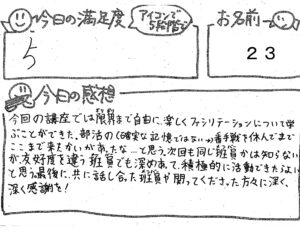 今日の満足度
アイコンで
5段階で
お名前
5
23
今日の感想
今回の講座では願員まで自由に楽しくファシリテーションについて学
ぶことができた。部活の(確実な記憶ではないが)番手戦を休んでまで
ここまで来たかいがあったな…と思う。次回も同じ班員かは知らない
が友好度を違う班員でも深めあって、積極的に活動できたらよい
と思う。最後に、共に話し合った班員や関ってくださった方々に深く、
深く感謝を!